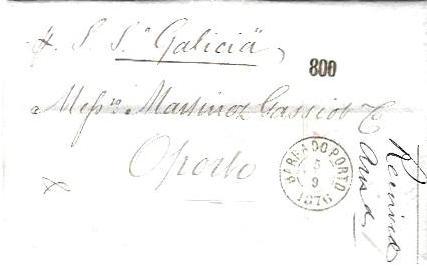 p. S. S.ª "Galicia"
800
Messrs. Martinez Gassiot & C
Oporto
BARRA DO PORTO
5
9
1876
Received